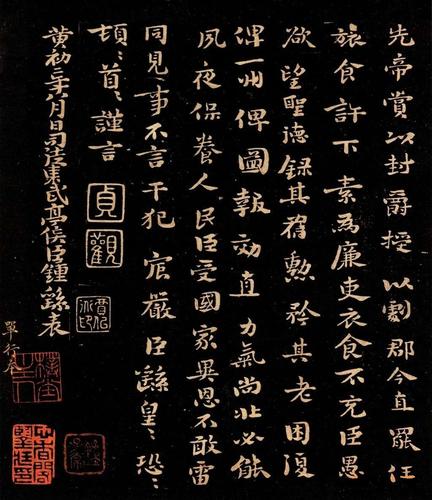 先帝賞以封爵授以劇郡今直罷任
旅食許下素為廉吏衣食不充臣愚
欲望聖德録其舊勲矜其老困復
俾一州俾圖報効直力氣尚壯必能
夙夜保養人民臣受國家異恩不敢雷
同見事不言干犯宸嚴臣繇皇〻恐〻
頓〻首〻謹言
貞觀
黃初二年八月日司徒東武亭侯臣鍾繇表